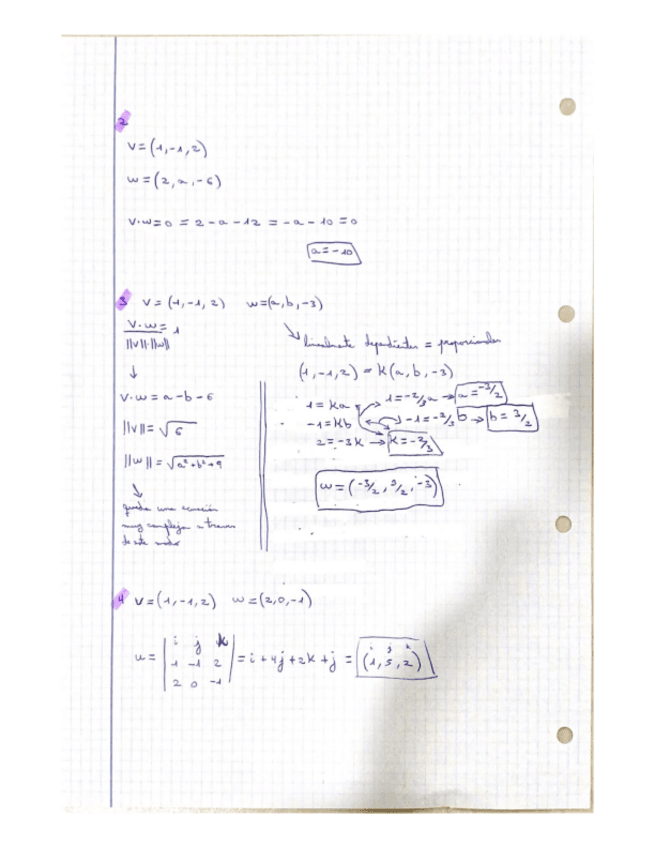 2
v=(1,-1,2)
w=(2,a,-6)
v·w=0 = 2-a-12 = -a-10=0
a=-10
3 v=(1,-1,2) w=(a,b,-3)
v·w / ||v||·||w|| = 1
↓
v·w = a-b-6
||v||= √6
||w|| = √a²+b²+9
↓
queda una ecuación
muy compleja a traves
de este modo
↘ linealmente dependientes = proporcionales
(1,-1,2) = K(a,b,-3)
1=Ka → 1=-2/3a → a=-3/2
-1=Kb → -1=-2/3 b → b=3/2
2=-3K → K=-2/3
w=(-3/2, 3/2, -3)
4 v=(1,-1,2) w=(2,0,-1)
u= | i j k
1 -1 2
2 0 -1 | = i+4j+2k+j = (1,5,2)
i j k